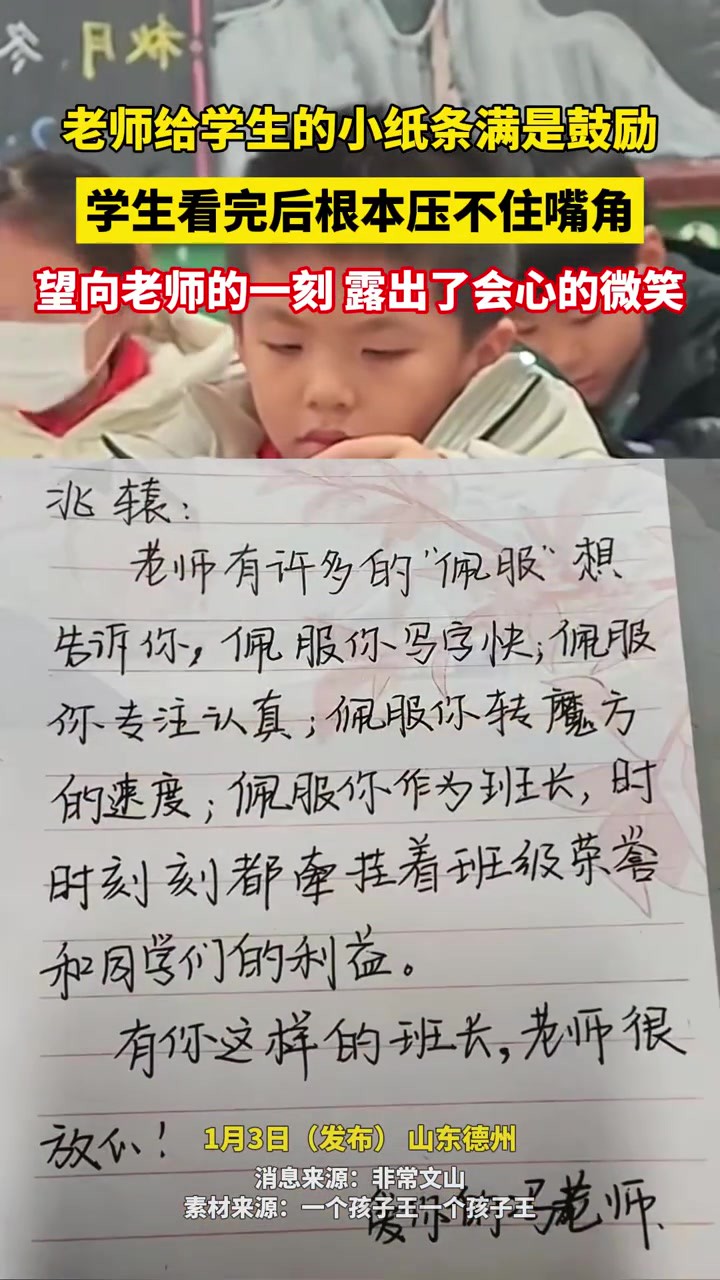 秋月、冬
老师给学生的小纸条满是鼓励
学生看完后根本压不住嘴角
望向老师的一刻 露出了会心的微笑
兆辕：
老师有许多的“佩服”想
告诉你，佩服你写字快；佩服
你专注认真；佩服你转魔方
的速度；佩服你作为班长，时
时刻刻都牵挂着班级荣誉
和同学们的利益。
有你这样的班长，老师很
放心！
1月3日（发布） 山东德州
消息来源：非常文山
素材来源：一个孩子王一个孩子王
爱你的冯老师